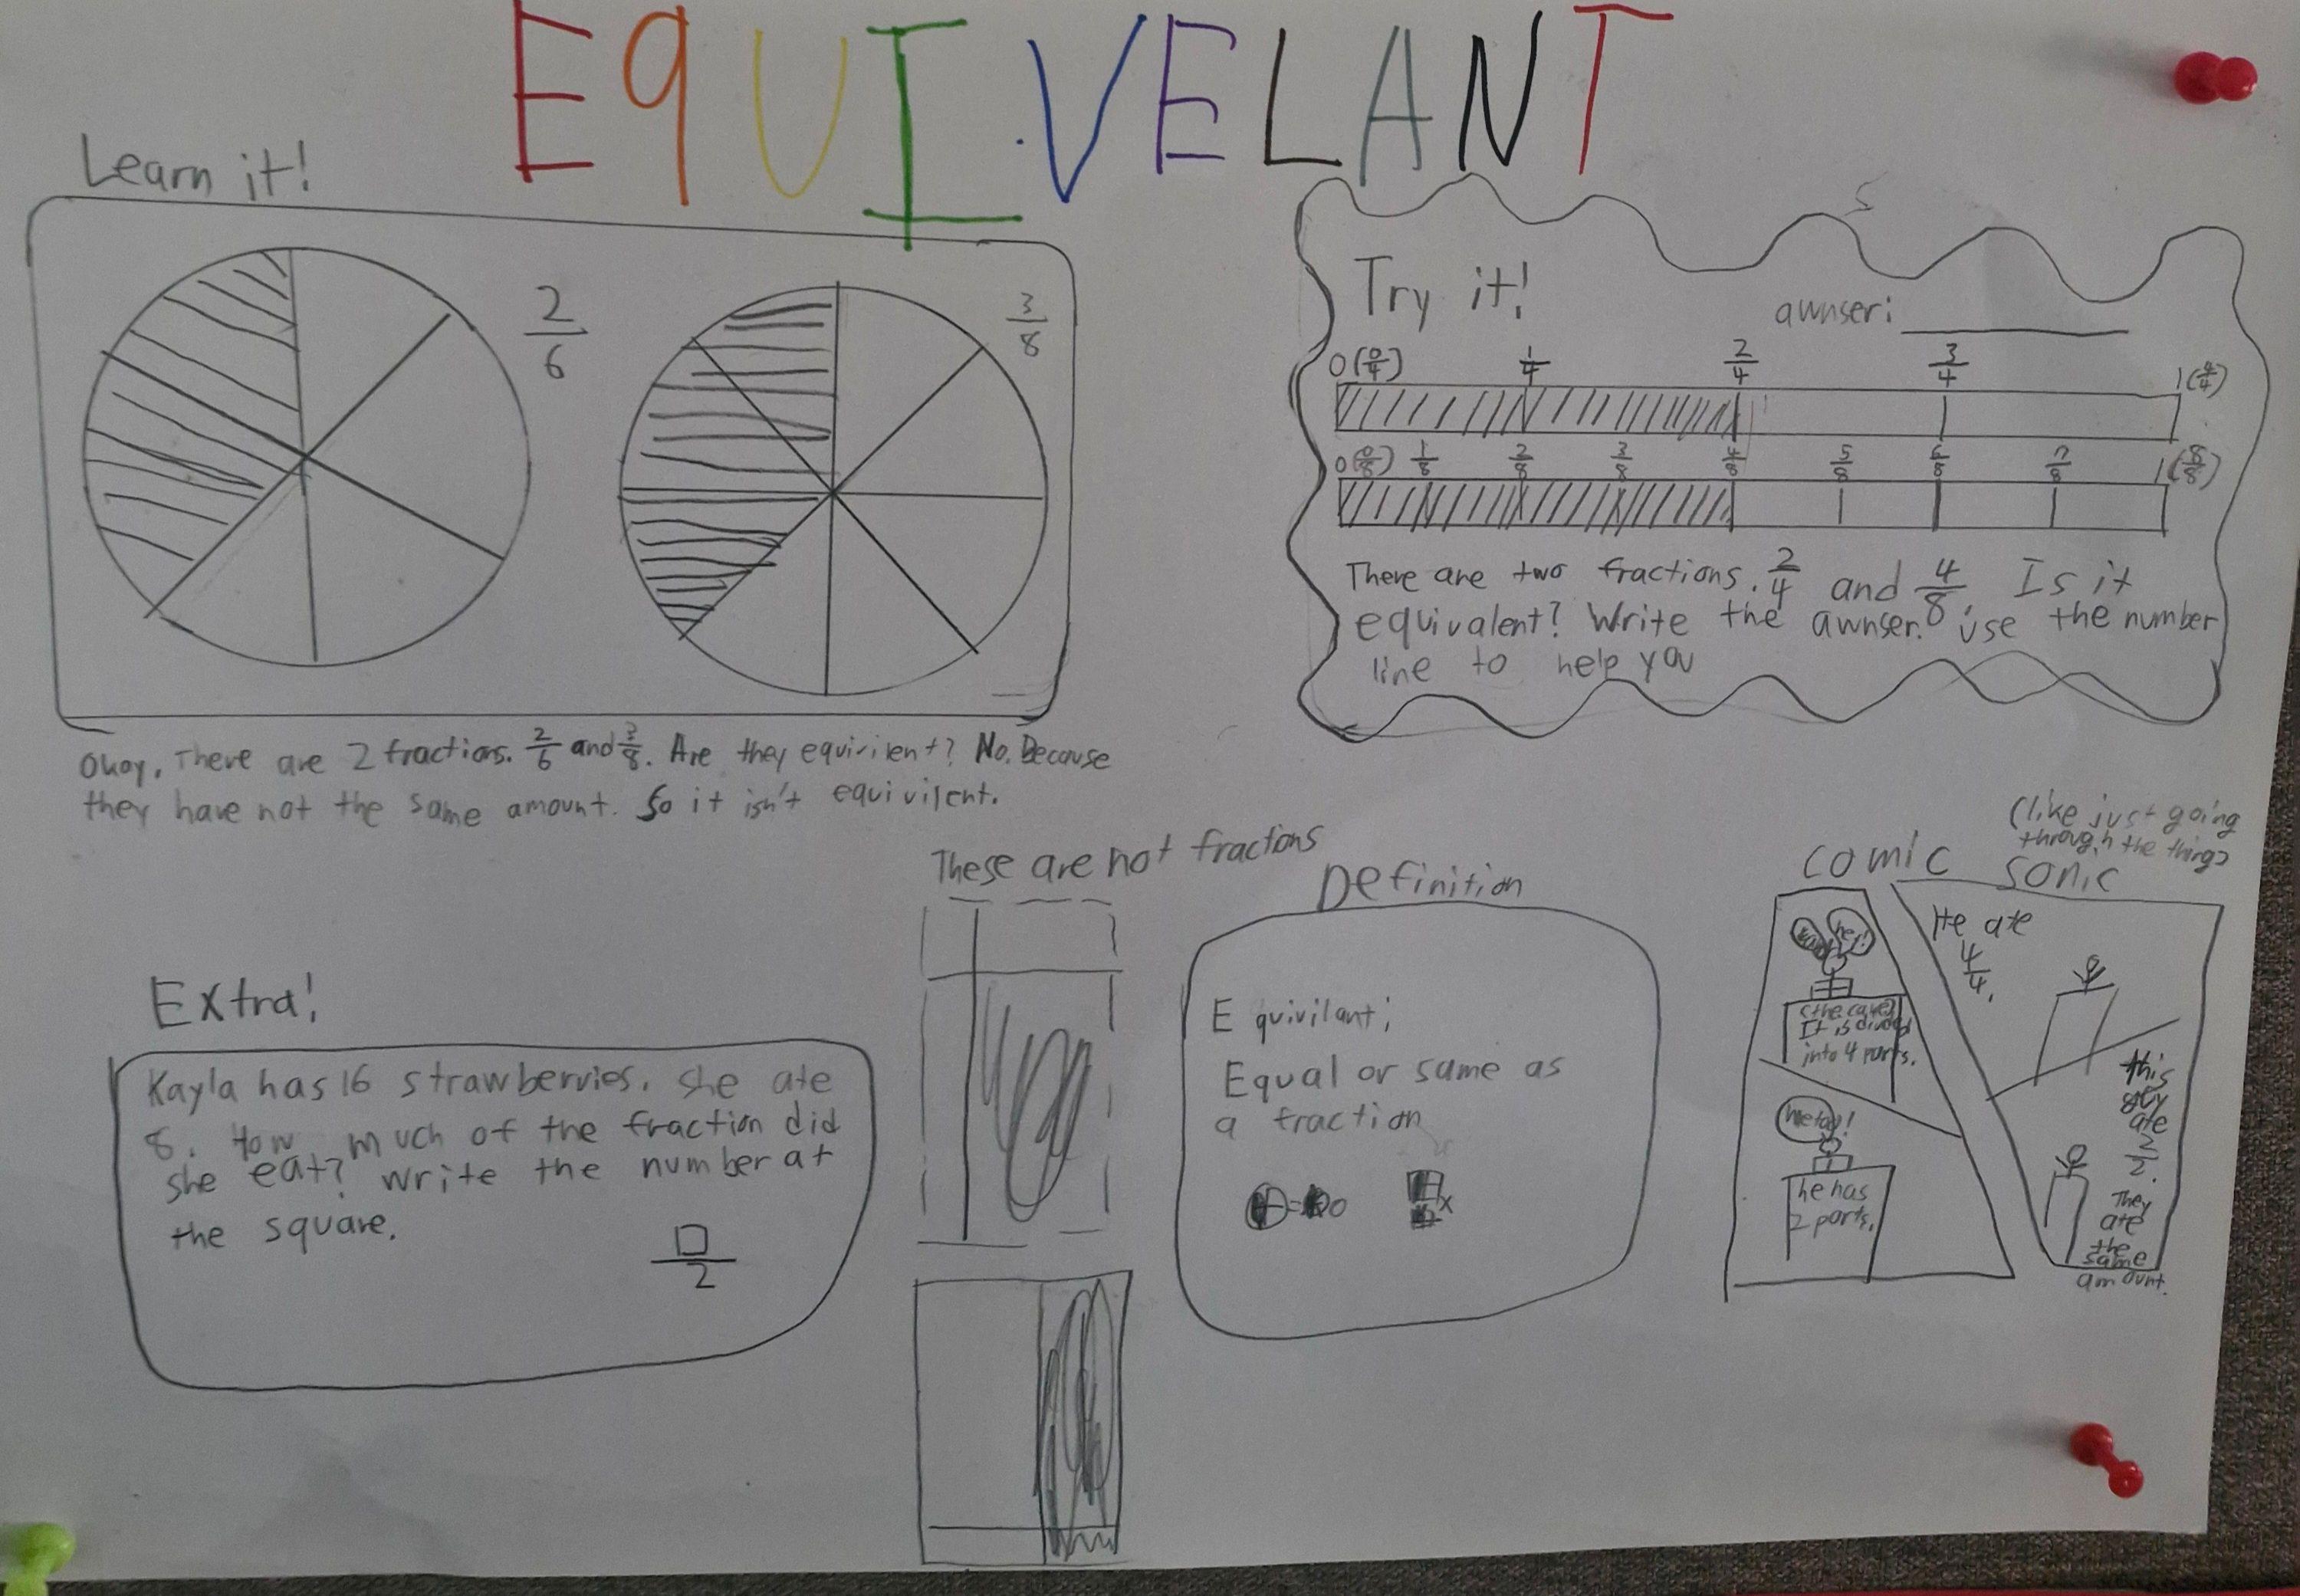 EqUIVELANT
Learn it!
2/6
3/8
Okay, There are 2 fractions. 2/6 and 3/8. Are they equivilent? No. Because
they have not the same amount. So it isn't equivilent.
Try it!
awnser:
0 (0/4) 1/4 2/4 3/4 1 (4/4)
0 (0/8) 1/8 2/8 3/8 4/8 5/8 6/8 7/8 1 (8/8)
There are two fractions. 2/4 and 4/8. Is it
equivalent? Write the awnser. use the number
line to help you
Extra!
Kayla has 16 strawberries. She ate
8. How much of the fraction did
she eat? write the number at
the square.
□/2
These are not fractions
Definition
Equivilant;
Equal or same as
a fraction
(like just going
through the things
comic sonic
hey!
(the cake)
It is divided
into 4 parts.
he has
2 parts.
He ate
4/4.
this
guy
ate
2/2.
They
ate
the
same
amount.